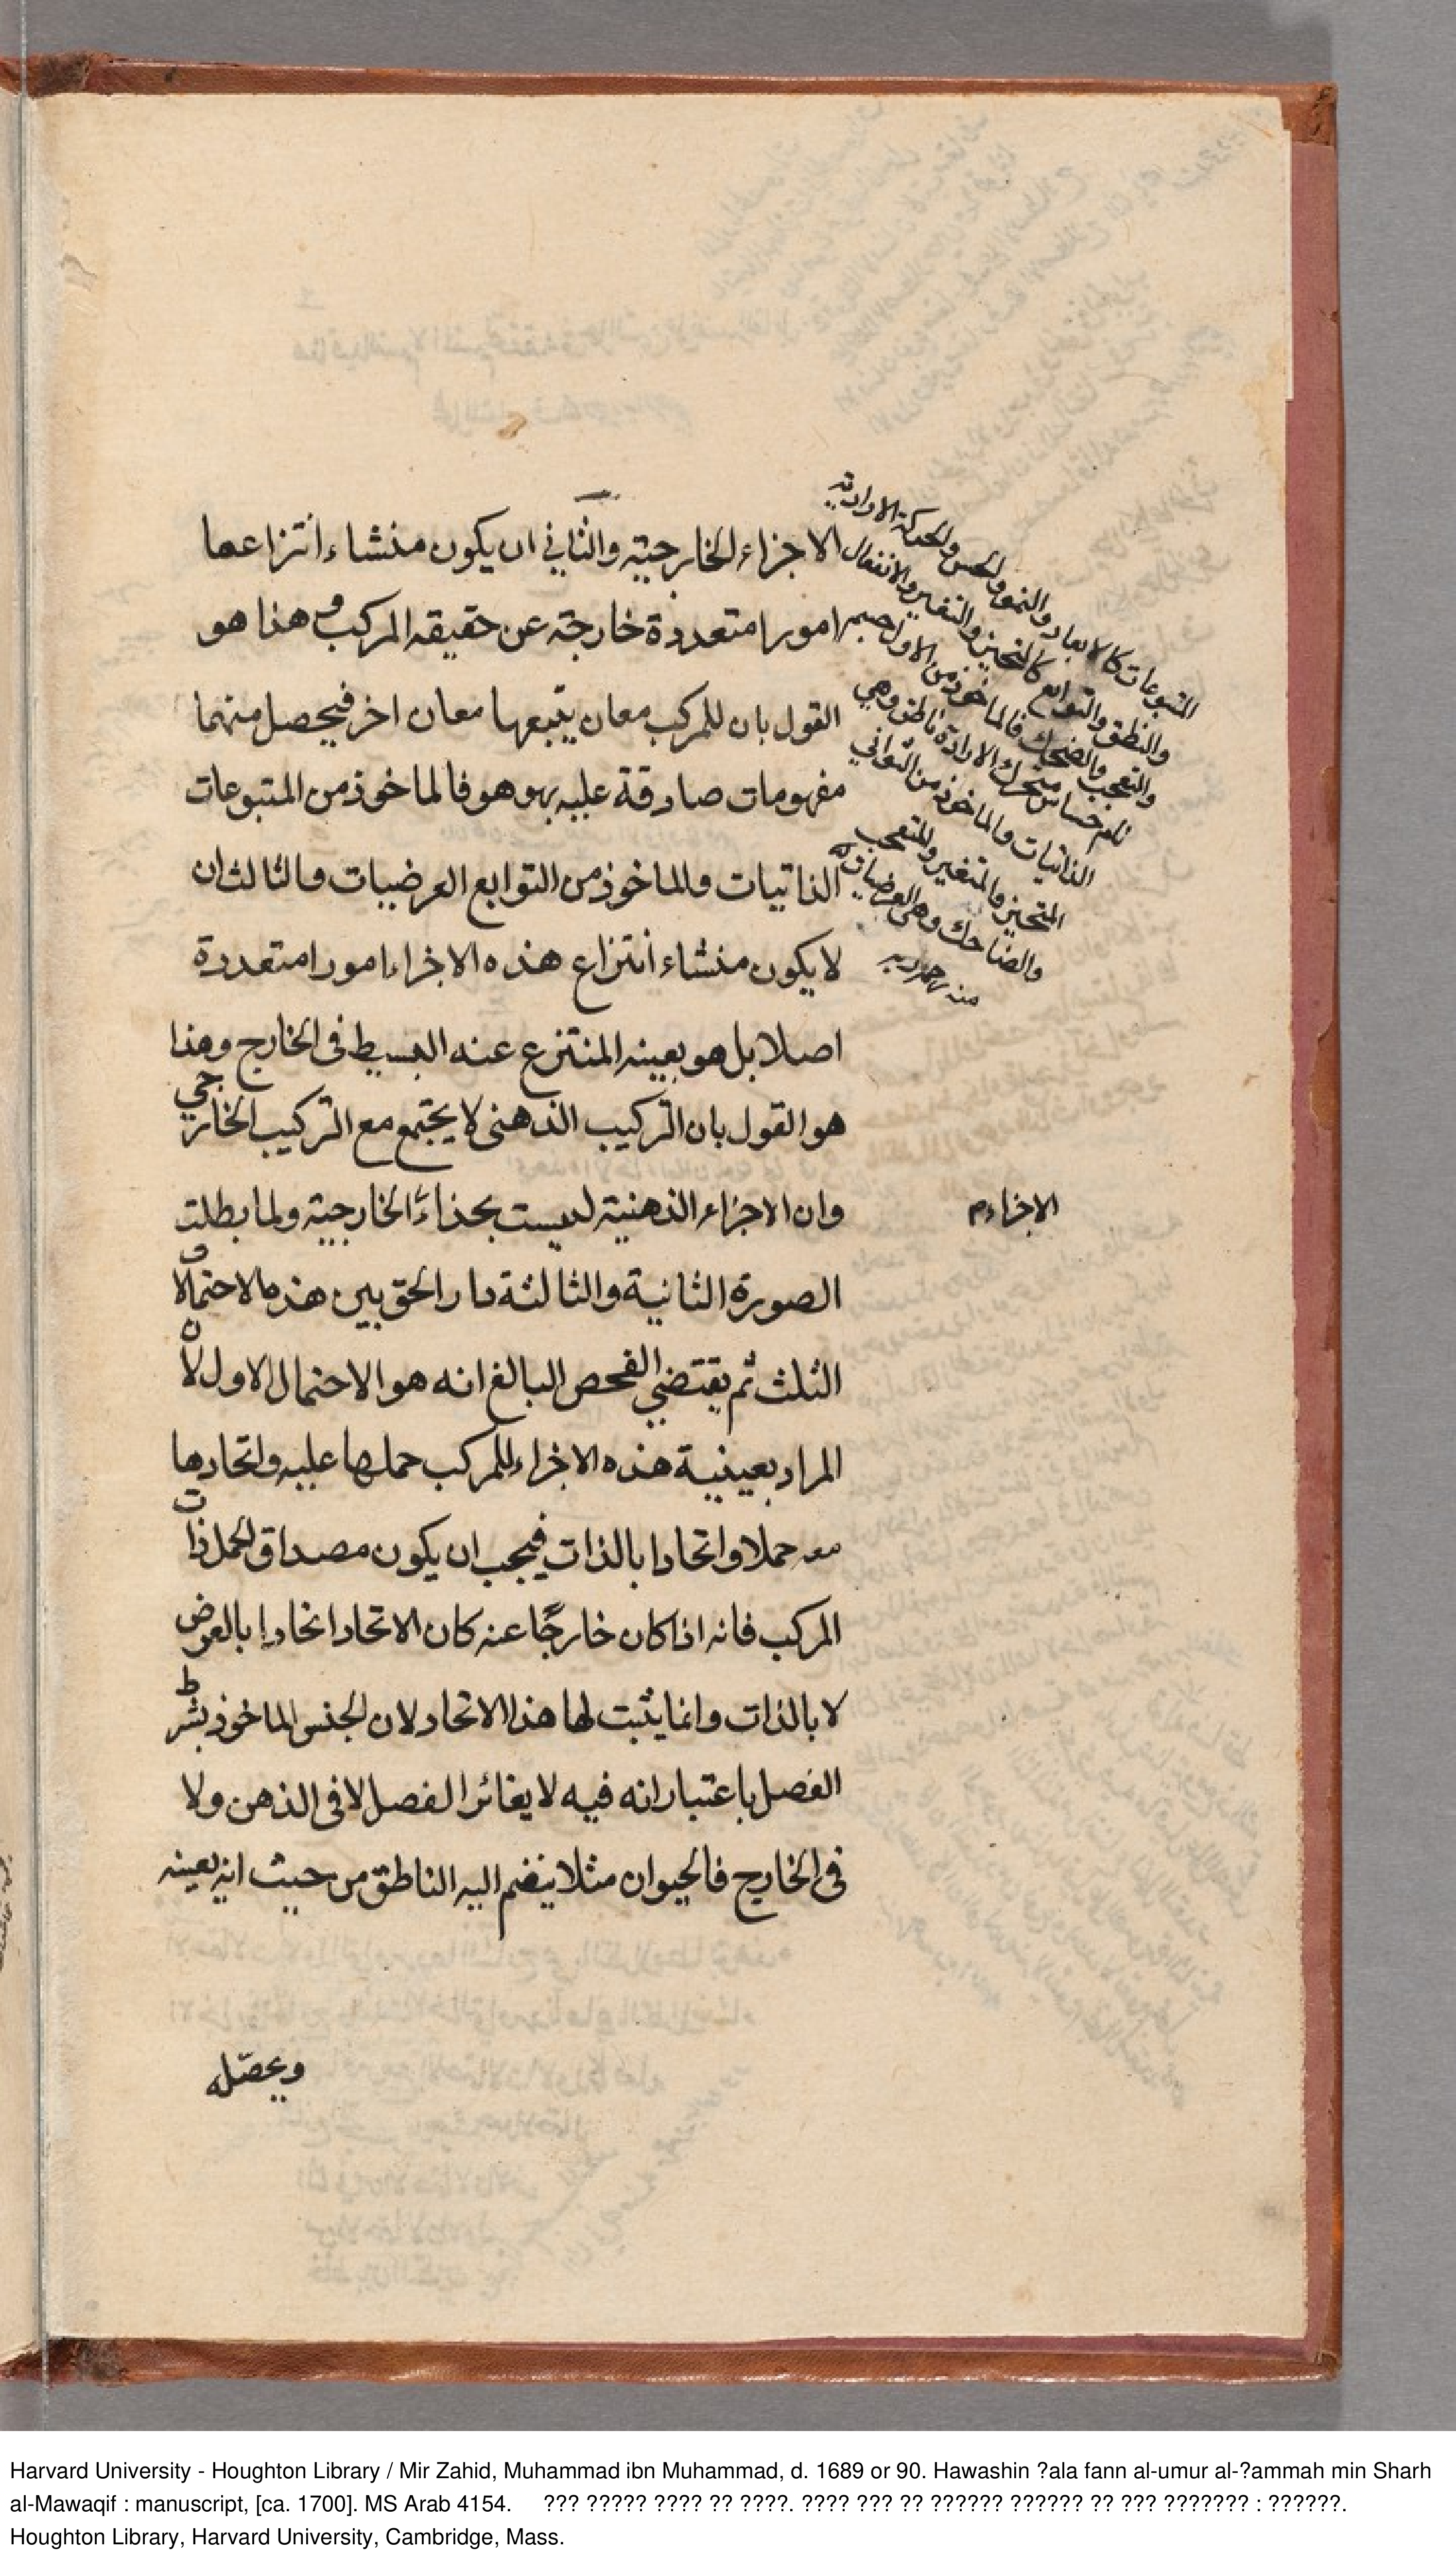 الاجزاء الخارجية والثاني ان يكون منشاء انتزاعها
امورا متعددة خارجة عن حقيقه المركب وهذا هو
القول بان للمركب معان يتبعها معان اخر فيحصل منهما
مفهومات صادقة عليه بهو هو فالماخوذ من المتبوعات
الذاتيات والماخوذ من التوابع العرضيات والثالث ان
لا يكون منشاء انتزاع هذه الاجزاء امورا متعددة
اصلا بل هو بعينه المنتزع عنه البسيط فى الخارج وهذا
هو القول بان التركيب الذهنى لا يجتمع مع التركيب الخارجي
وان الاجزاء الذهنية ليست بحذاء الخارجية ولما بطلت
الصورة الثانية والثالثة دار الحق بين هذه الاحتمالات
الثلث ثم يقتضي الفحص البالغ انه هو الاحتمال الاول لان
المراد بعينية هذه الاجزاء للمركب حملها عليه واتحادها
معه حملا واتحادا بالذات فيجب ان يكون مصداق الحمل ذات
المركب فانه اذا كان خارجًا عنه كان الاتحاد اتحادا بالعرض
لا بالذات وانما يثبت لها هذا الاتحاد لان الجنس الماخوذ بشرط
الفصل باعتبار انه فيه لا يغائر الفصل لا فى الذهن ولا
فى الخارج فالحيوان مثلا ينضم اليه الناطق من حيث انه بعينه
ويحصّله
المتبوعات كالابعاد والنمو والحس والحركة الارادية
والنطق والتوابع كالتحيز والتغير والانفعال
والتعجب والضحك فالماخوذ من الاول جسم
نام حساس متحرك بالارادة ناطق وهي
الذاتيات والماخوذ من الثواني
المتحيز والمتغير والمتعجب
والضاحك وهي العرضيات
منه رحمه ربه
الاجزاء م
Harvard University - Houghton Library / Mir Zahid, Muhammad ibn Muhammad, d. 1689 or 90. Hawashin ?ala fann al-umur al-?ammah min Sharh
al-Mawaqif : manuscript, [ca. 1700]. MS Arab 4154. ??? ????? ???? ?? ????. ???? ??? ?? ?????? ?????? ?? ??? ??????? : ??????.
Houghton Library, Harvard University, Cambridge, Mass.